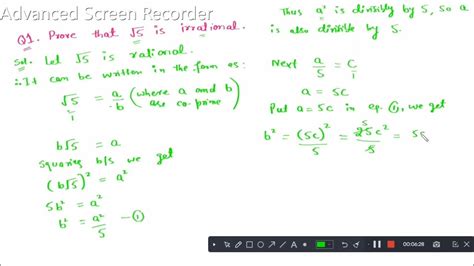 Advanced Screen Recorder
Q1. Prove that √5 is irrational.
Sol. Let √5 is rational.
∴ It can be written in the form as:
√5/1 = a/b (where a and b are co-prime)
b√5 = a
Squaring b/s we get
(b√5)² = a²
5b² = a²
b² = a²/5 —①
Thus a² is divisible by 5, so a
is also divisible by 5.
Next a/5 = c/1
a = 5c
Put a = 5c in eq. ①, we get
b² = (5c)²/5 = 25c²/5 = 5
00:06:28